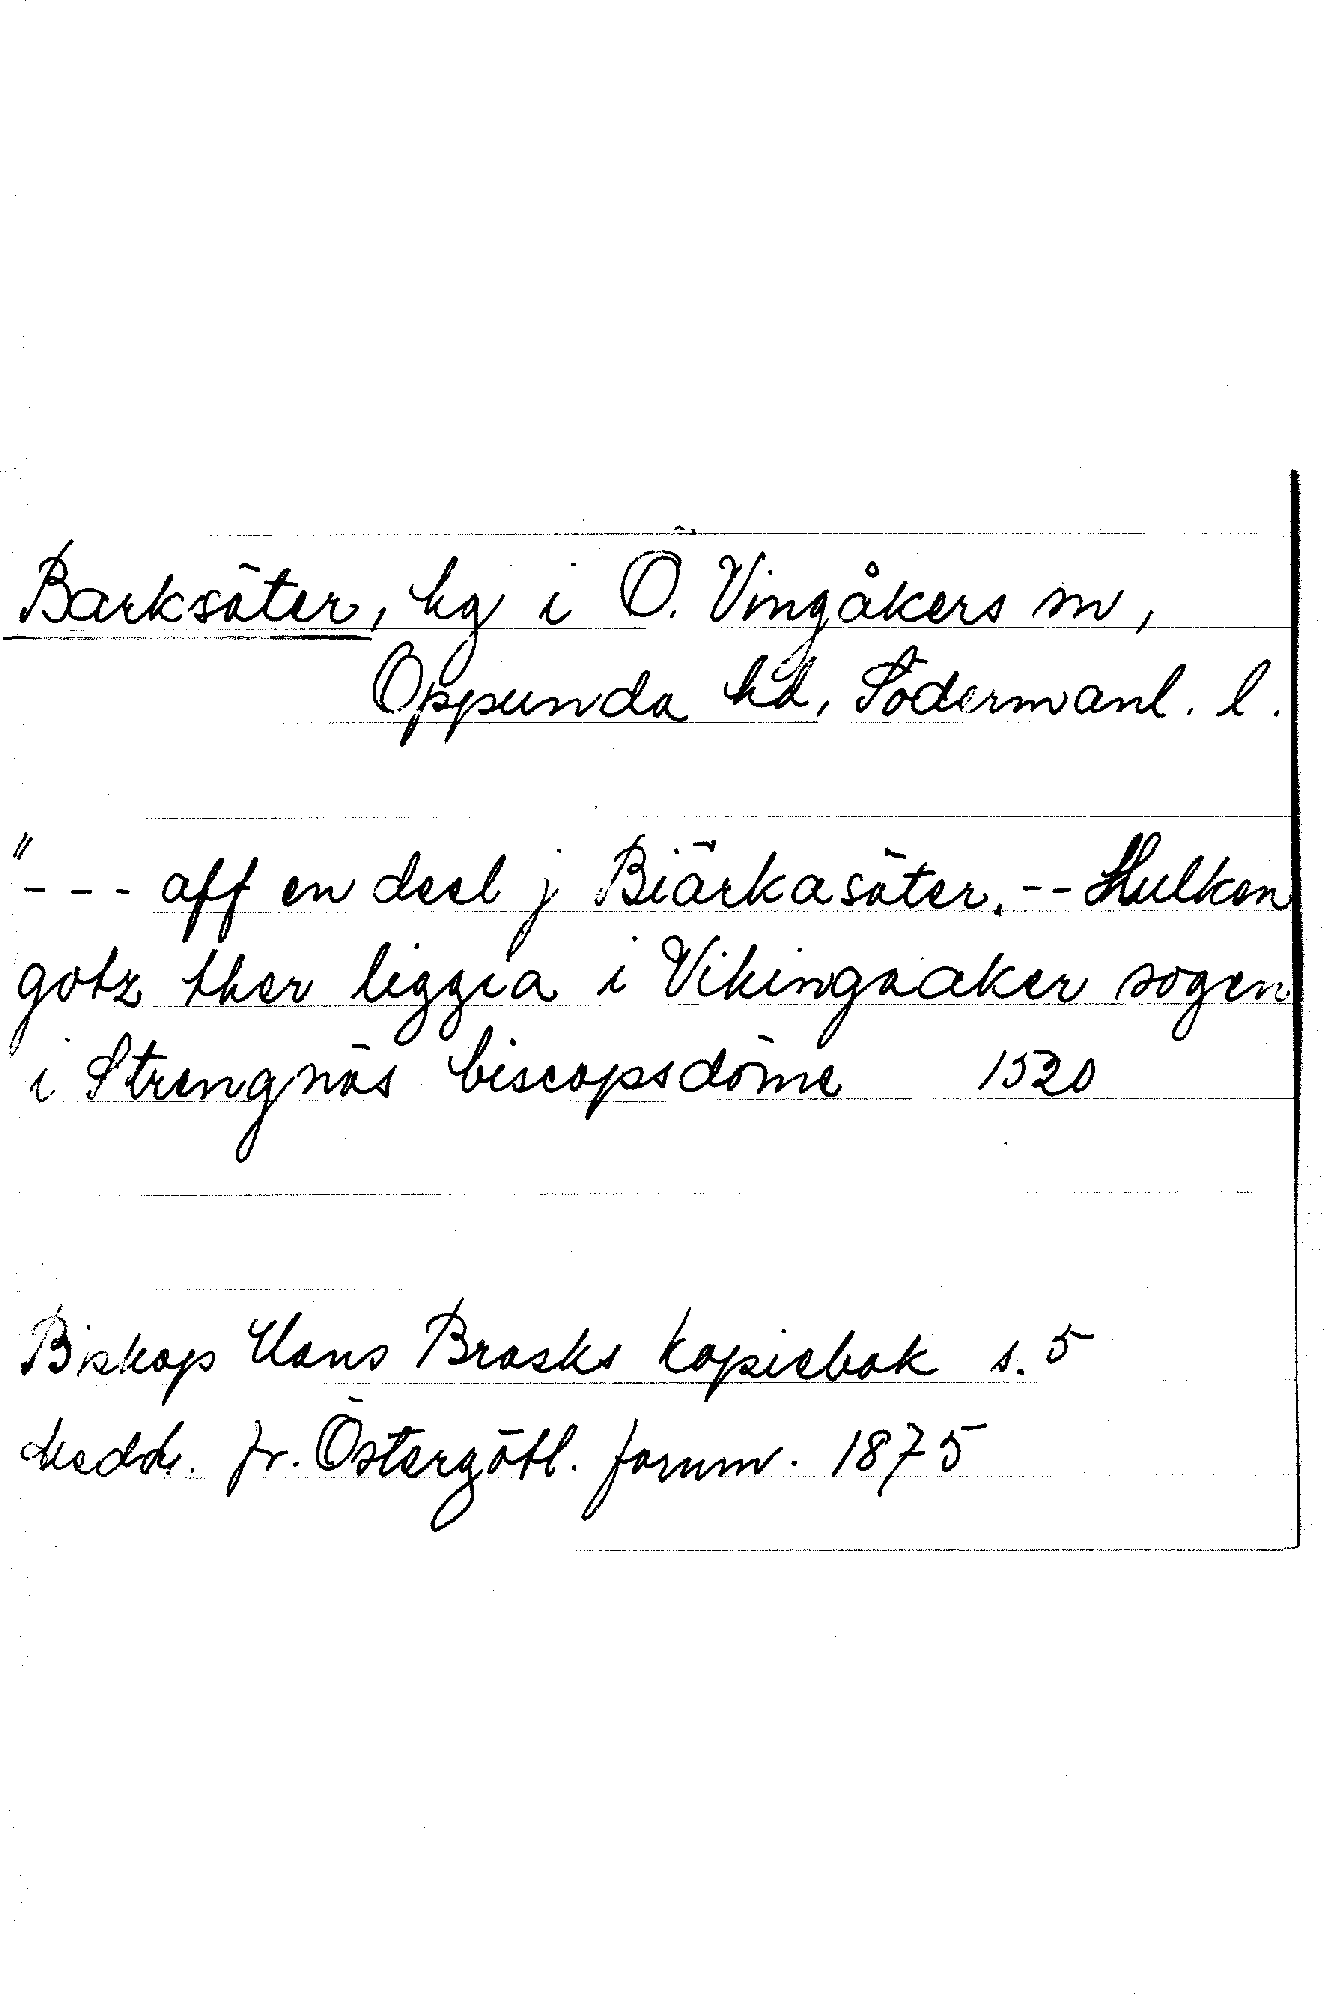 Barksäter, hg i Ö. Vingåkers sn,
Oppunda hd, Södermanl. l.
"--- aff en deel j Biärkasäter. -- Hulken
gotz ther liggia i Vikingaaker sogen
i Strengnäs biscopsdöme 1520
Biskop Hans Brasks kopiebok s. 5
Medd. fr. Östergötl. fornm. 1875